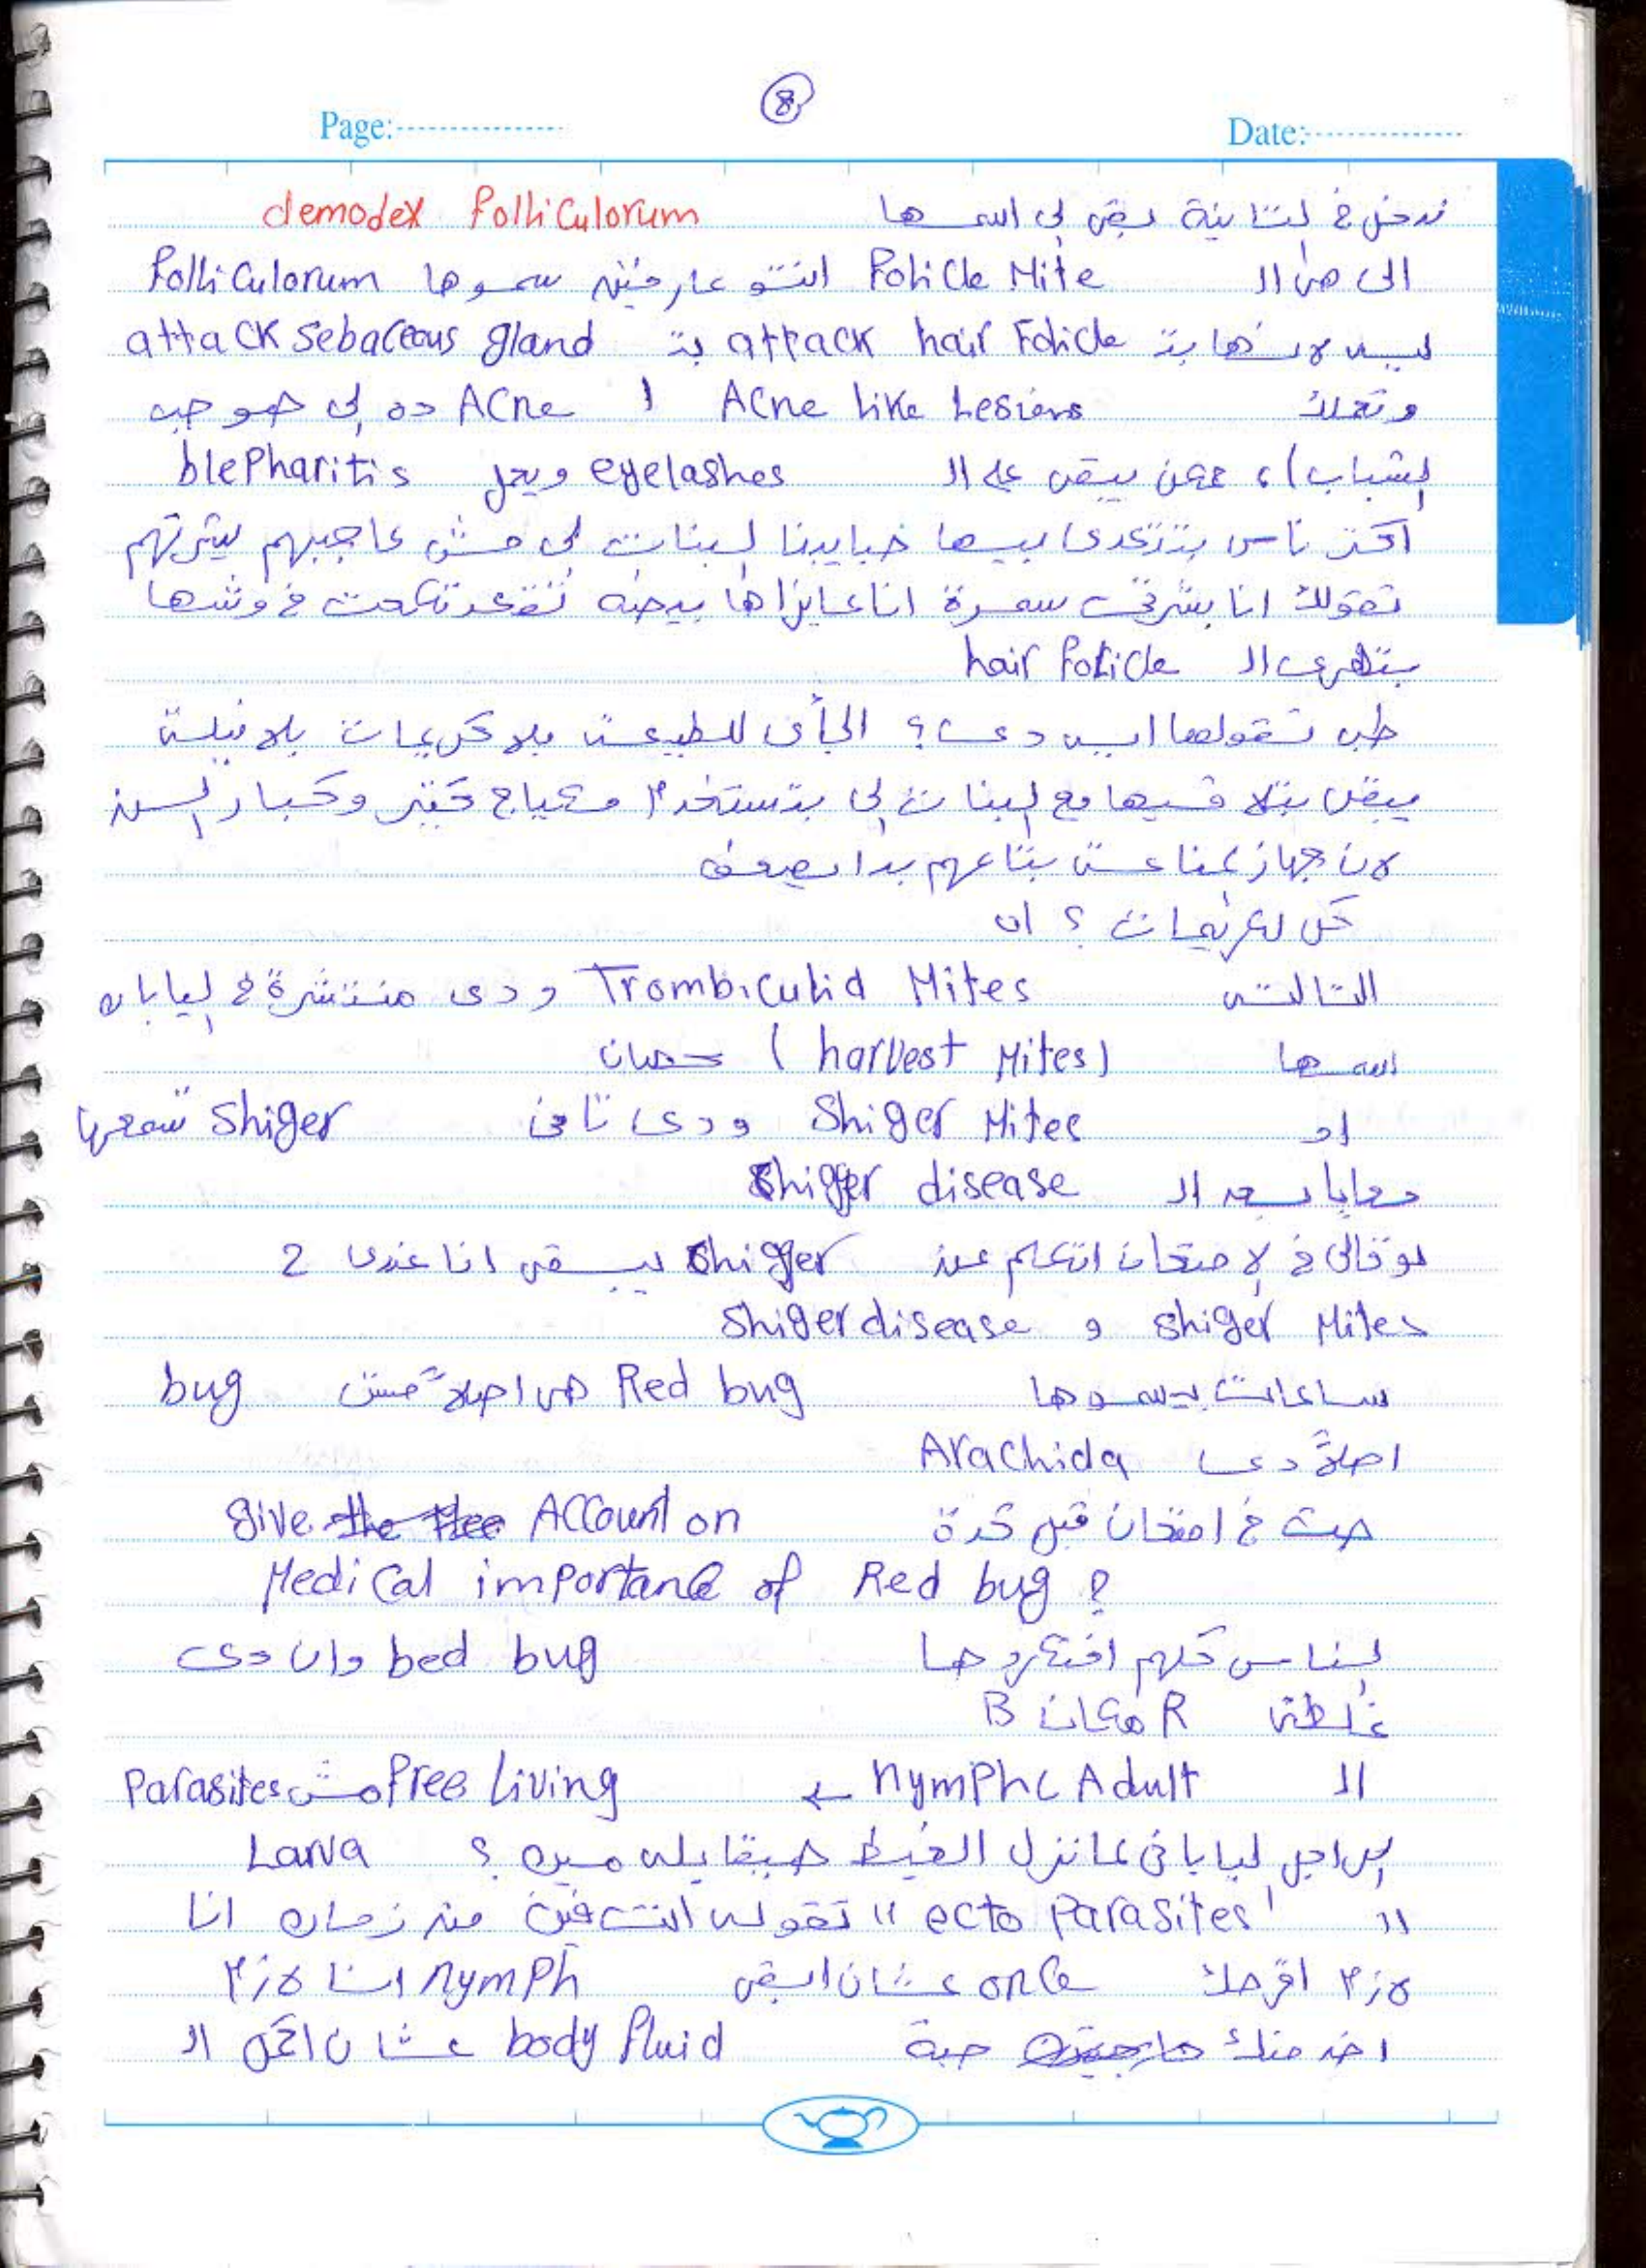 8
Page: Date:
ندخل في لتانية بقى لي اسمها demodex folliculorum
الي هى ال Folicle Mite انتو عارفين سموها folliculorum
ليه لانها بتـ attack hair Folicle بتـ attack sebaceous gland
وتعملك Acne like Lesions ا Acne ده لي هو حب
لشباب)، ممكن يبقى على ال eyelashes ويعمل blepharitis
اكتر ناس بتتعدى بيها حبايبنا لبنات لي مش عاجبهم بشرتهم
تقولك انا بشرتي سمرة انا عايزاها بيضه تقعد تكحت في وشها
بتهرى ال hair folicle
طب تقولها ايه دى؟ الجأى للطبيعة بلا كريمات بلا نيلة
يبقى بتلاقيها مع لبنات لي بتستخدم مكياج كتير وكبار لسن
لان جهاز لمناعة بتاعهم بدا يضعف
كل لكريمات؟ اه
التالتة Trombiculid Mites ودى منتشرة في ليابان
اسمها (harvest Mites) حصان
او Shiger Mites ودى تانى Shiger سمعها
معايا بعد ال Shigger disease
لو قالى في لامتحان اتكلم عن Shigger يبقى انا عندى 2
Shiger disease و shiger Mites
ساعات بيسموها Red bug هى اصلاً مش bug
اصلاً دى Arachida
جت في امتحان قبل كدة give the thee Account on
Medical importance of Red bug ?
لناس كلهم افتكروها bed bug وان دى
غلطة R مكان B
ال nymph c Adult ← free living مش Parasites
الراجل ليابانى لما نزل الغيط هيقابله مين؟ Larva
ال ecto parasites تقوله انت فين من زمان انا
لازم اقرصك once عشان ابقى nymph انا لازم
اخد منك حبة body fluid عشان اكمل ال